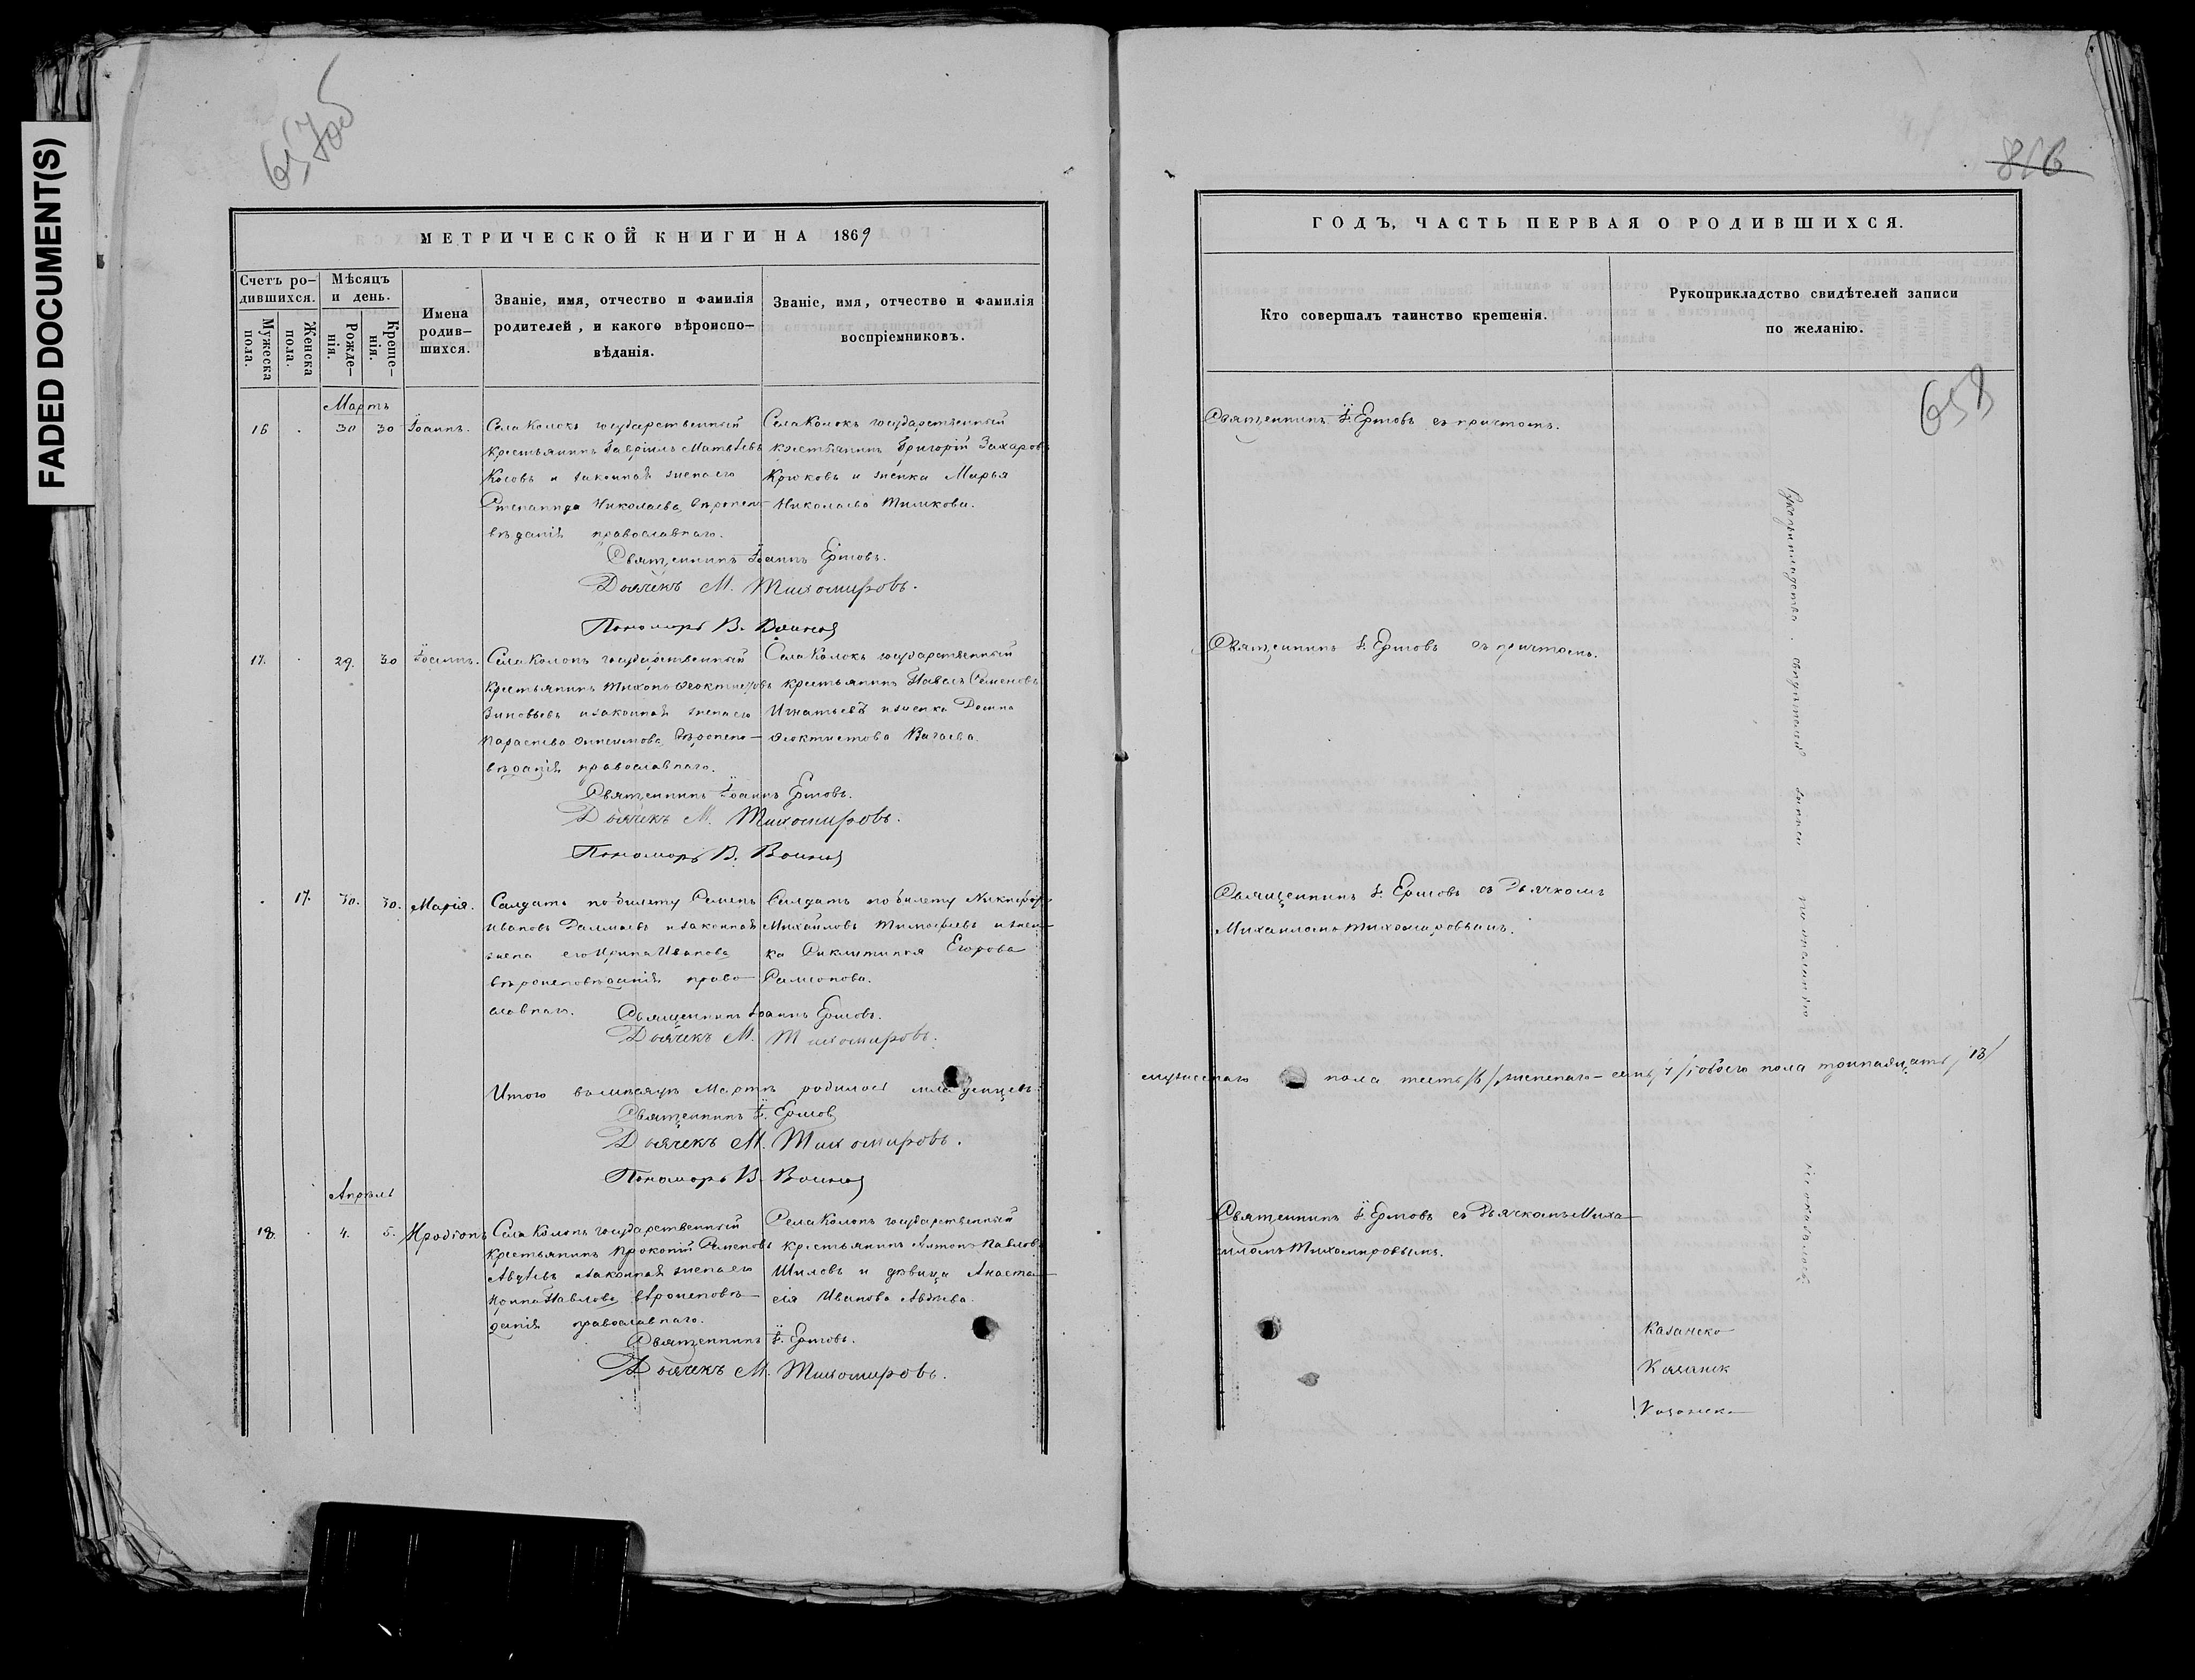 FADED DOCUMENT(S)
657об
816
658
МЕТРИЧЕСКОЙ КНИГИ НА 1869
Счетъ родившихся.
Мужеска пола.
Женска пола.
Мѣсяцъ и день.
Рожденія.
Крещенія.
Имена родившихся.
Званіе, имя, отчество и фамилія
родителей, и какого вѣроиспо-
вѣданія.
Званіе, имя, отчество и фамилія
воспріемниковъ.
ГОДЪ, ЧАСТЬ ПЕРВАЯ О РОДИВШИХСЯ.
Кто совершалъ таинство крещенія.
Рукоприкладство свидѣтелей записи
по желанію.
Мартъ
16 30 30 Іоаннъ.
Села Колокъ государственный
крестьянинъ Гавріилъ Матвѣевъ
Косовъ и законная жена его
Степанида Николаева, вѣроиспо-
вѣданія православнаго.
Села Колокъ государственный
крестьянинъ Григорій Захаровъ
Крюковъ и женка Марья
Николаева
Священникъ І. Ершовъ съ причтомъ.
Священникъ Іоаннъ Ершовъ.
Дьячекъ М. Тихомировъ.
Пономарь В.
17. 29. 30 Іоаннъ.
Села Колокъ государственный
крестьянинъ Тихонъ Феоктистовъ
Зиновьевъ и законная жена его
Параскева вѣроиспо-
вѣданія православнаго.
Села Колокъ государственный
крестьянинъ Павелъ Семеновъ
Игнатьевъ и женка Домна
Феоктистова
Священникъ І. Ершовъ съ причтомъ.
Священникъ Іоаннъ Ершовъ.
Дьячекъ М. Тихомировъ.
Пономарь В.
17. 30. 30. Марія.
Салдатъ по билету Семенъ
Ивановъ и законная
жена его Ирина Иванова
вѣроисповѣданія право-
славнаго.
Салдатъ по билету Никифоръ
Михайловъ Тимофеевъ и жен-
ка Егорова
Самсонова.
Священникъ І. Ершовъ съ Дьячкомъ
Михаиломъ Тихомировымъ.
Священникъ Іоаннъ Ершовъ.
Дьячекъ М. Тихомировъ.
Итого въ мѣсяцѣ Мартѣ родилось младенцевъ:
мужескаго пола шесть /6/, женскаго – семь /7/, обоего пола тринадцать /13/
Священникъ І. Ершовъ
Дьячекъ М. Тихомировъ.
Пономарь В.
Апрѣль
18. 4. 5. Иродіонъ
Села Колокъ государственный
крестьянинъ Прокопій Семеновъ
Авдѣевъ и законная жена его
Ирина Павлова, вѣроисповѣ-
данія православнаго.
Села Колокъ государственный
крестьянинъ Антонъ Павловъ
Шиловъ и дѣвица Анаста-
сія Иванова Авдѣева.
Священникъ І. Ершовъ съ Дьячкомъ Миха-
иломъ Тихомировымъ.
Священникъ І. Ершовъ.
Дьячекъ М. Тихомировъ.
Рукоприкладства свидѣтелей записи по желанію не оказалось
Казанско
Казанск
Казанско